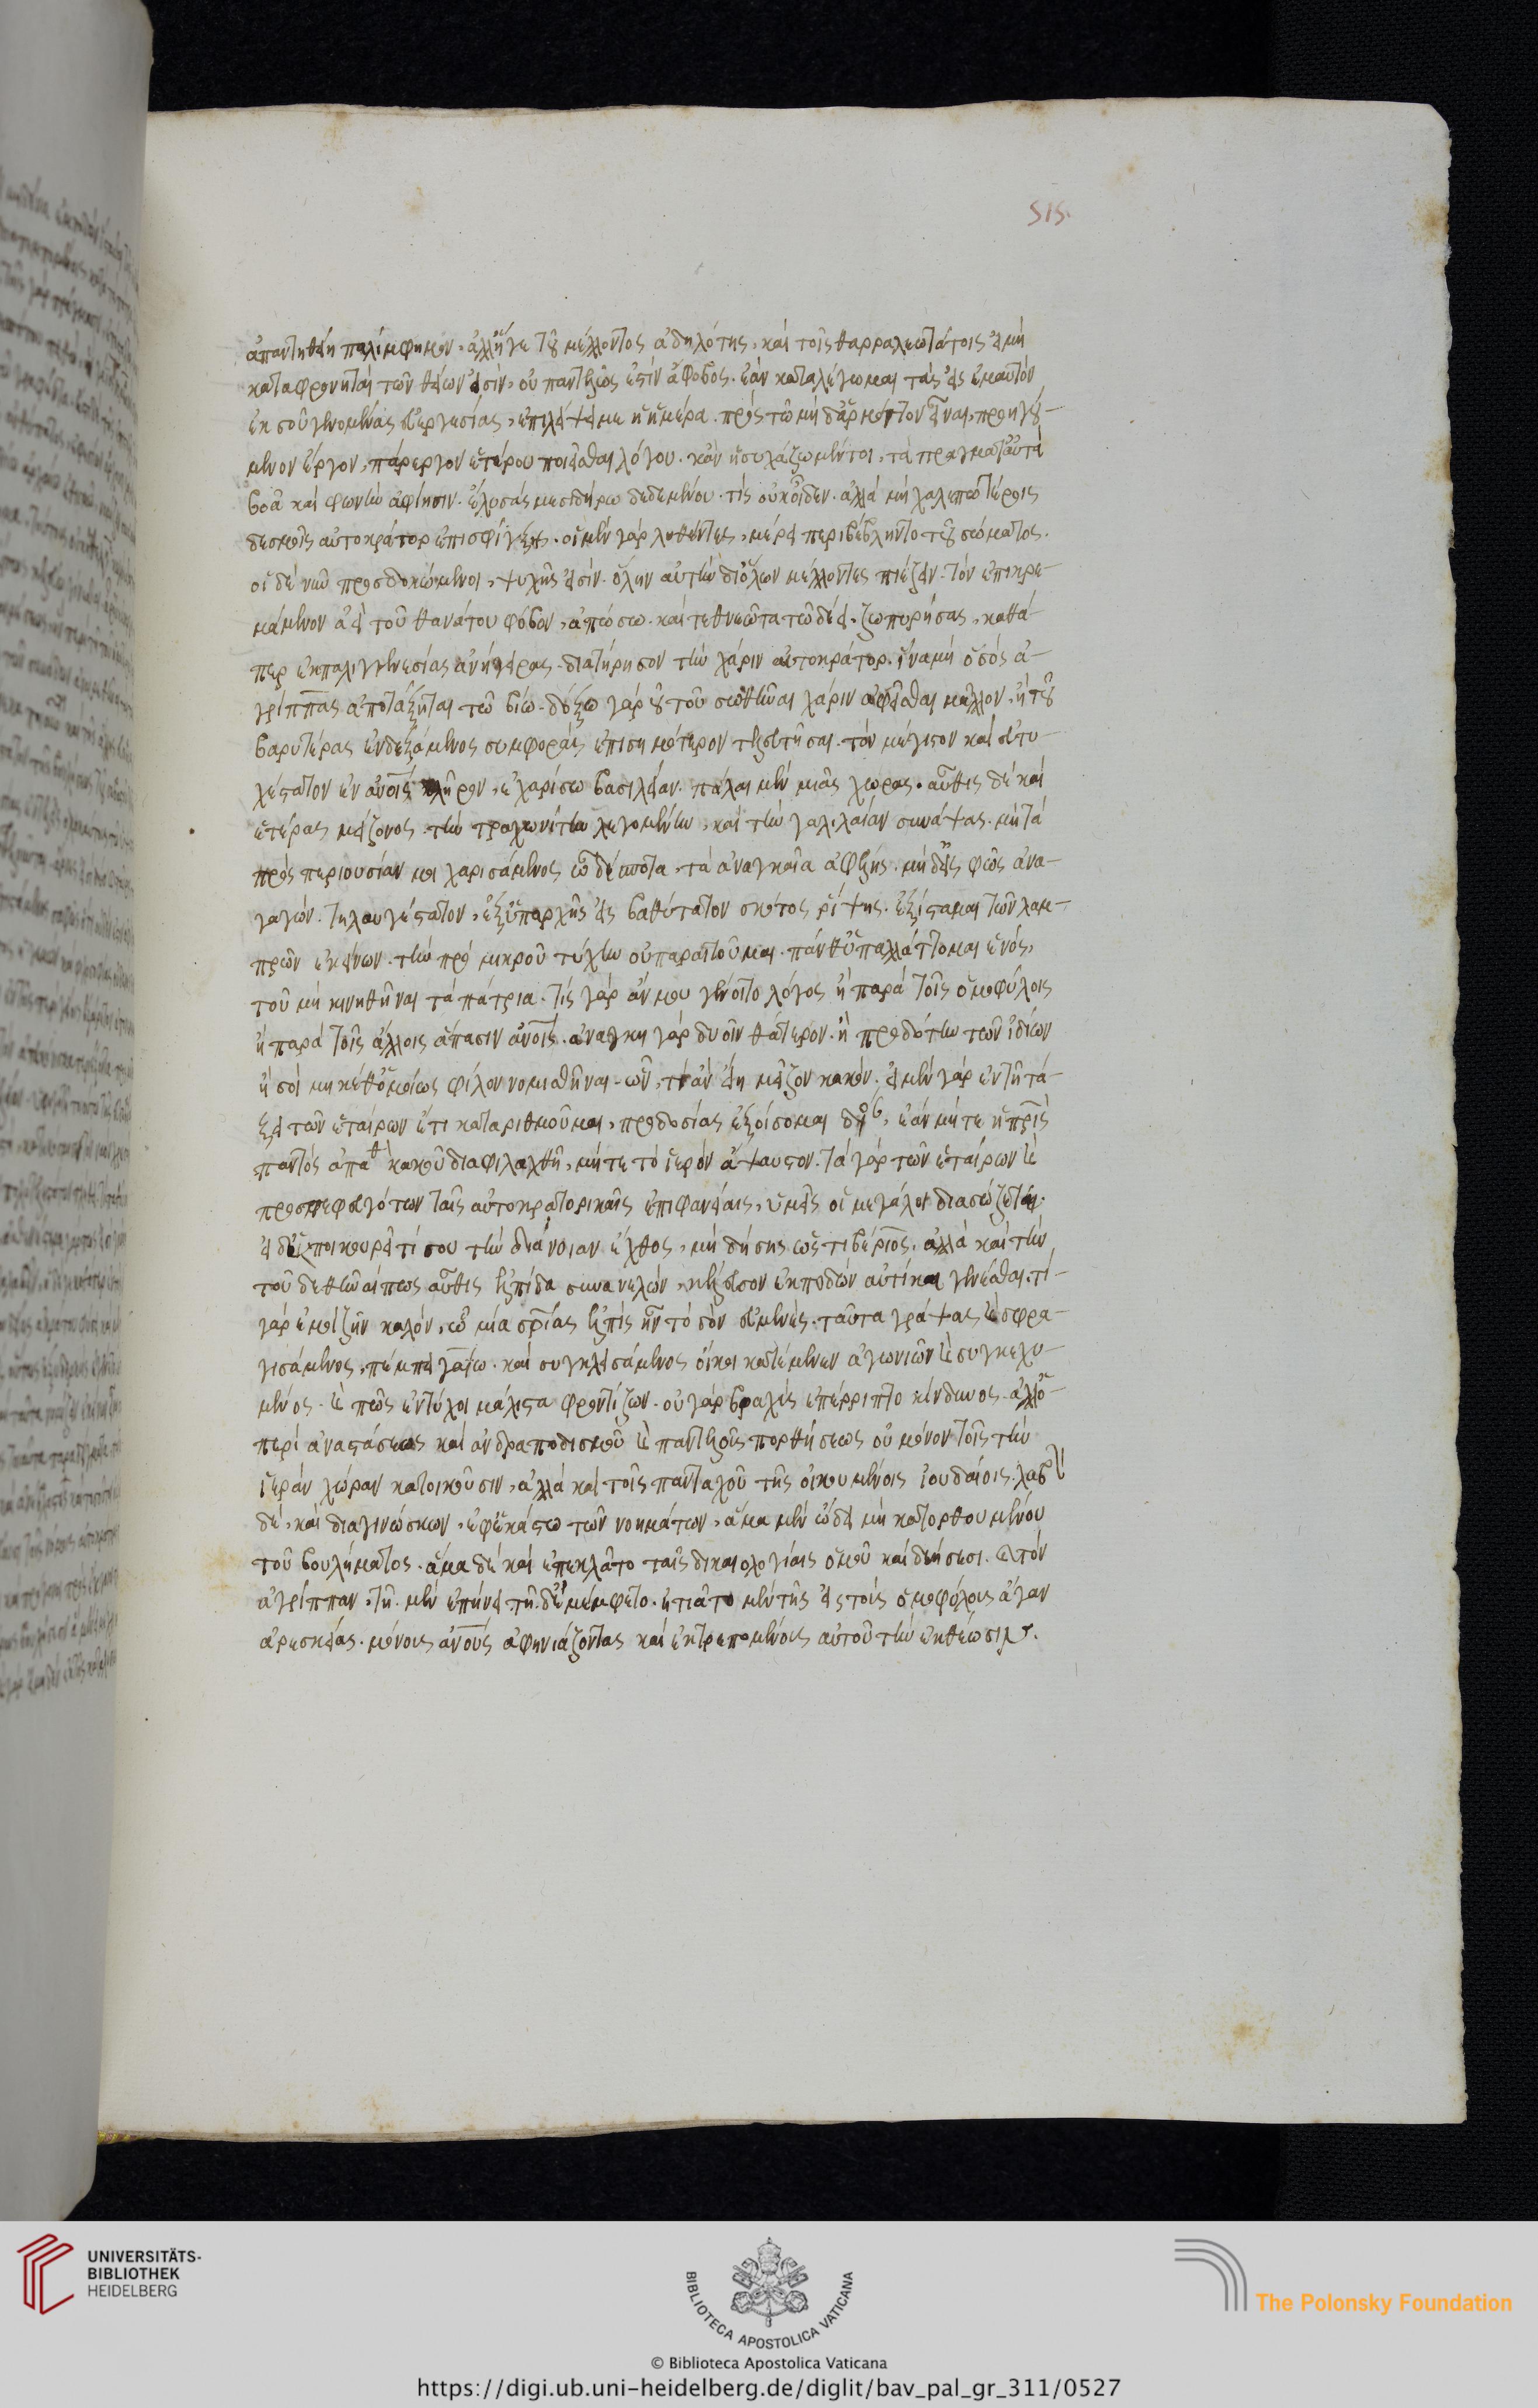 515.
ἀπαντηθείη παλίμφημον, ἀλλ' ἥγε τοῦ μέλλοντος ἀδηλότης, καὶ τοῖς θαρραλεωτάτοις εἰ μὴ
καταφρονηταὶ τῶν θείων εἰσὶν, οὐ παντελῶς ἐστὶν ἄφοβος. ἐὰν καταλέγωμαι τὰς εἰς ἐμαυτὸν
ἐκ σοῦ γενομένας εὐεργεσίας, ἐπιλείψει με ἡ ἡμέρα. πρὸς τῶ μὴ δ' ἁρμόττον εἶναι, προηγού-
μενον ἔργον, πάρεργον ἑτέρου ποιεῖσθαι λόγου. κἂν ἡσυχάζω μέντοι, τὰ πράγματ' αὐτὰ
βοᾶ καὶ φωνὴν ἀφίησιν. ἔλυσάς με σιδήρω δεδεμένον. τίς οὐκ οἶδεν. ἀλλὰ μὴ χαλεπωτέροις
δεσμοῖς αὐτοκράτορ ἐπισφίγξης. οἱ μὲν γὰρ λυθέντες, μέρει περιβέβληντο τοῦ σώματος.
οἱ δὲ νῦν προσδοκώμενοι, ψυχῆς εἰσίν. ὅλην αὐτὴν δι' ὅλων μέλλοντες πιέζειν. τὸν ἐπικρε-
μάμενον ἀεὶ τοῦ θανάτου φόβον, ἀπώσω. καὶ τεθνεῶτα τῶ δέει. ζωπυρήσας, καθά-
περ ἐκ παλιγγενεσίας ἀνήγειρας. διατήρησον τὴν χάριν αὐτοκράτορ. ἵνα μὴ ὁ σὸς ἀ-
γρίππας ἀποτάξηται τῶ βίω. δόξω γὰρ οὐ τοῦ σωθῆναι χάριν ἀφεῖσθαι μᾶλλον, ἢ τοῦ
βαρυτέρας ἐνδεξάμενος συμφορὰς ἐπισημότερον τελευτῆσαι. τὸν μέγιστον καὶ εὐτυ-
χέστατον ἐν ἀνοις κλῆρον, ἐχαρίσω βασιλείαν. πάλαι μὲν μιᾶς χώρας. αὖθις δὲ καὶ
ἑτέρας μείζονος. τὴν τραχωνῖτιν λεγομένην, καὶ τὴν γαλιλαίαν συνάψας. μὴ τὰ
πρὸς περιουσίαν μοι χαρισάμενος ὦ δέσποτα, τὰ ἀναγκαῖα ἀφέλης. μὴ δ' εἰς φῶς ἀνα-
γαγὼν. τηλαυγέστατον, ἐξ ὑπαρχῆς εἰς βαθύτατον σκότος ῥίψης. ἐξίσταμαι τῶν λαμ-
πρῶν ἐκείνων. τὴν πρὸ μικροῦ τύχην οὐ παραιτοῦμαι. πάνθ' ὑπαλλάττομαι ἑνός,
τοῦ μὴ κινηθῆναι τὰ πάτρια. τίς γὰρ ἄν μου γένοιτο λόγος ἢ παρὰ τοῖς ὁμοφύλοις
ἢ παρὰ τοῖς ἄλλοις ἅπασιν ἀνοις. ἀνάγκη γὰρ δυοῖν θάτερον. ἢ προδότην τῶν ἰδίων
ἢ σοὶ μηκέθ' ὁμοίως φίλον νομισθῆναι. ὧν, τί ἂν εἴη μεῖζον κακόν. εἰ μὲν γὰρ ἐν τῆ τά-
ξει τῶν ἑταίρων ἔτι καταριθμοῦμαι, προδοσίας ἐξοίσομαι δόξαν, ἐὰν μήτε ἡ πρὶς
παντὸς ἀπαθὴς κακοῦ διαφυλαχθῆ, μήτε τὸ ἱερὸν ἄψαυστον. τὰ γὰρ τῶν ἑταίρων καὶ
προσπεφευγότων ταῖς αὐτοκρατορικαῖς ἐπιφανείαις, ὑμεῖς οἱ μεγάλοι διασώζετε.
εἰ δ' ὑποικουρεῖ τί σου τὴν διάνοιαν ἔχθος, μὴ δήσης ὡς τιβέριος. ἀλλὰ καὶ τὴν
τοῦ δεθῆναί πως αὖθις ἐλπίδα συνανελὼν, κέλευσον ἐκποδὼν αὐτίκα γενέσθαι. τί
γὰρ ἐμοὶ ζῆν καλόν, ὧ μία σρίας ἐλπὶς ἦν τὸ σὸν εὐμενές. ταῦτα γράψας καὶ σφρα-
γισάμενος, πέμπει γαΐω. καὶ συγκλεισάμενος οἴκοι κατέμενεν ἀγωνιῶν καὶ συγκεχυ-
μένος. καὶ πῶς ἐντύχοι μάλιστα φροντίζων. οὐ γὰρ βραχὺς ἐπέρριπτο κίνδυνος. ἀλλ' ὁ
περὶ ἀναστάσεως καὶ ἀνδραποδισμοῦ καὶ παντελοῦς πορθήσεως οὐ μόνον τοῖς τὴν
ἱερὰν χώραν κατοικοῦσιν, ἀλλὰ καὶ τοῖς πανταχοῦ τῆς οἰκουμένοις ἰουδαίοις. λαβὼν
δὲ, καὶ διαγινώσκων, ἐφ' ἑκάστω τῶν νοημάτων, ἅμα μὲν ᾤδει μὴ κατορθουμένου
τοῦ βουλήματος. ἅμα δὲ καὶ ἐπεκλᾶτο ταῖς δικαιολογίαις ὁμοῦ καὶ δεήσεσι. καὶ τὸν
ἀγρίππαν, τῆ μὲν ἐπήνει τῆ δ' ἐμέμφετο. ἠτιᾶτο μὲν τῆς εἰς τοὺς ὁμοφύλους ἄγαν
ἀρεσκείας. μόνους ἀνους ἀφηνιάζοντας καὶ ἐκτρεπομένους αὐτοῦ τὴν ἐκθέωσιν.
UNIVERSITÄTS-
BIBLIOTHEK
HEIDELBERG
BIBLIOTECA APOSTOLICA VATICANA
The Polonsky Foundation
© Biblioteca Apostolica Vaticana
https://digi.ub.uni-heidelberg.de/diglit/bav_pal_gr_311/0527